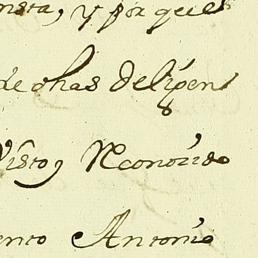 y por que
de ohas delijen
Visto y Reconosido
ento Antonio